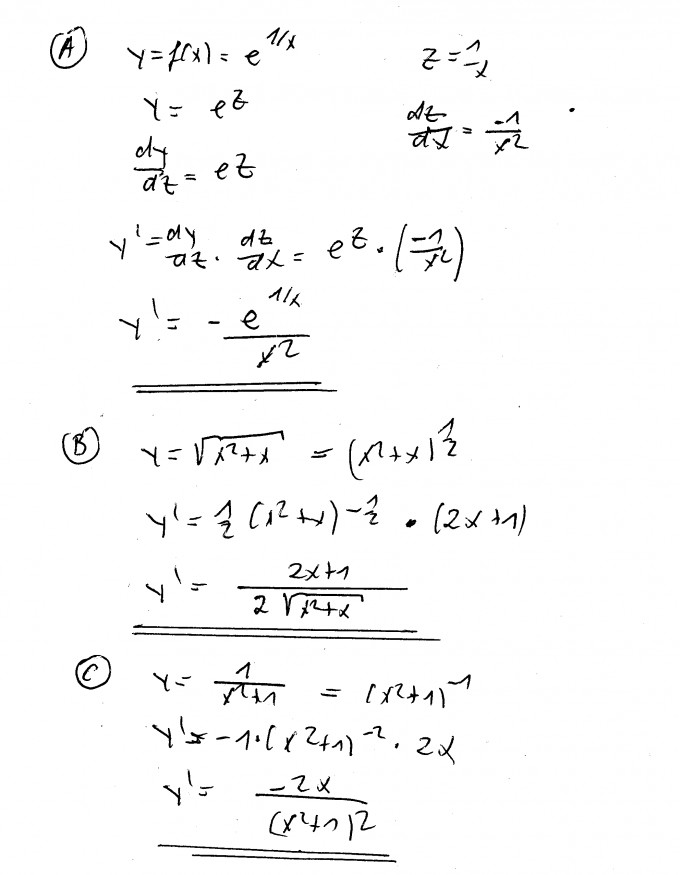 (A) y = f(x) = e^{1/x} z = 1/x
y = e^z dz/dx = -1/x²
dy/dz = e^z
y' = dy/dz · dz/dx = e^z · (-1/x²)
y' = - e^{1/x}/x²
(B) y = √(x²+x) = (x²+x)^{1/2}
y' = 1/2 (x²+x)^{-1/2} · (2x+1)
y' = (2x+1)/(2√(x²+x))
(C) y = 1/(x²+1) = (x²+1)^{-1}
y' = -1·(x²+1)^{-2} · 2x
y' = -2x/(x²+1)²